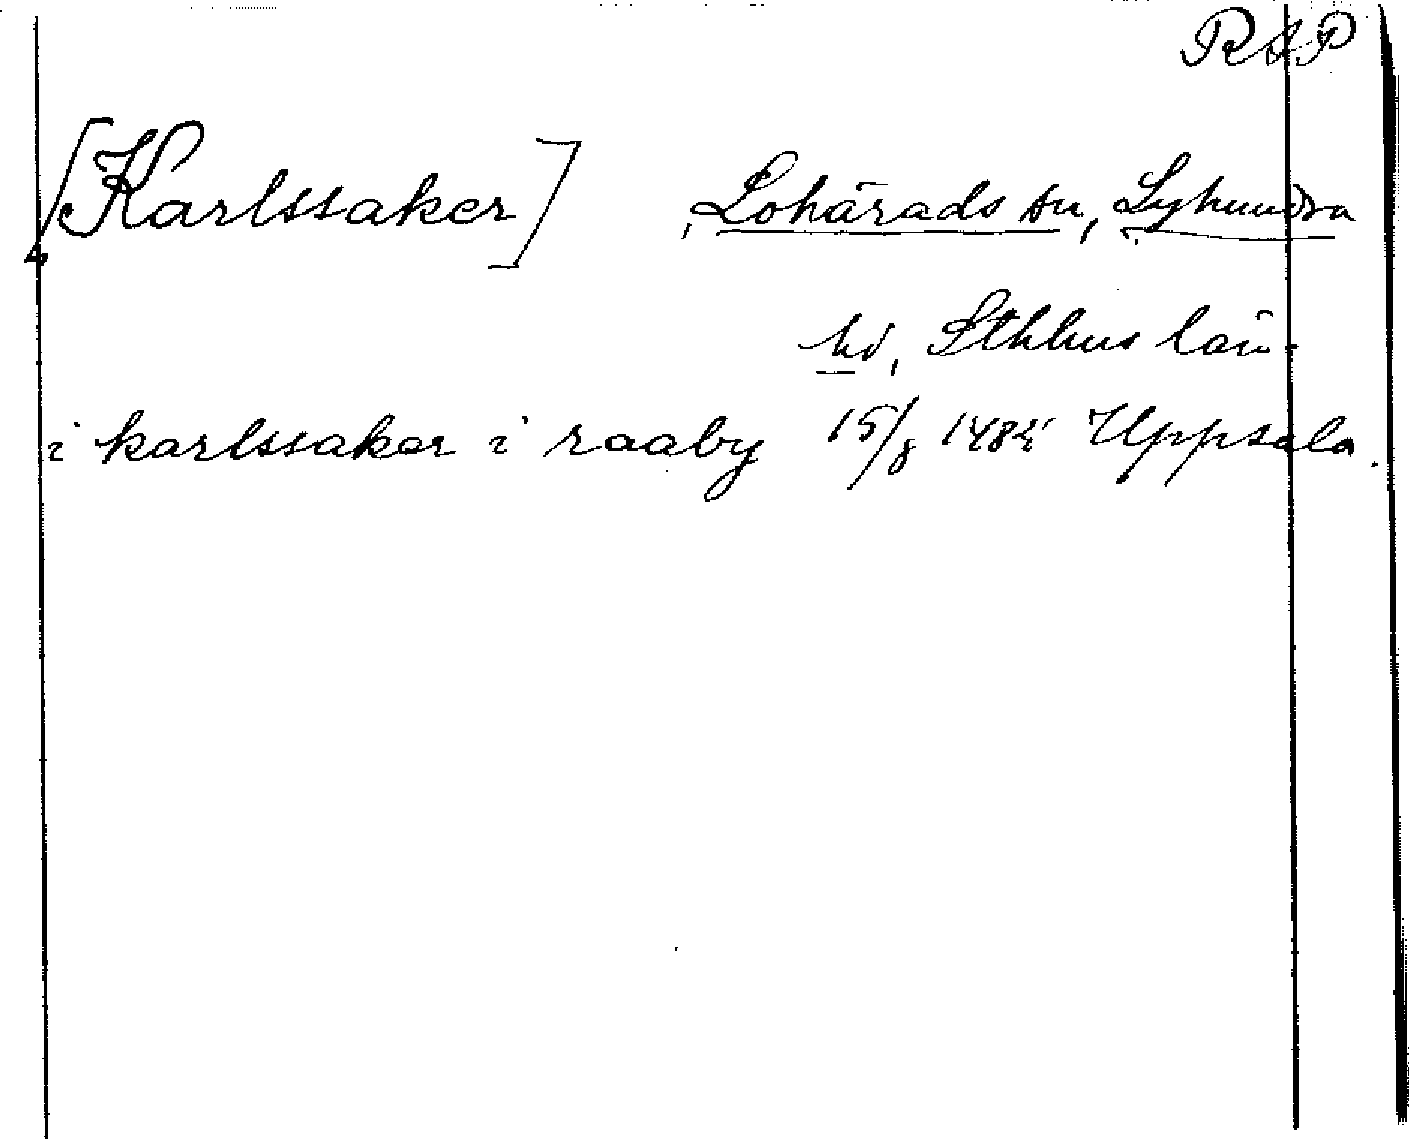 RAP
[Karlssaker] Lohärads sn, Lyhundra
hd, Sthlms län
i karlssaker i raaby 15/8 1485 Uppsala.